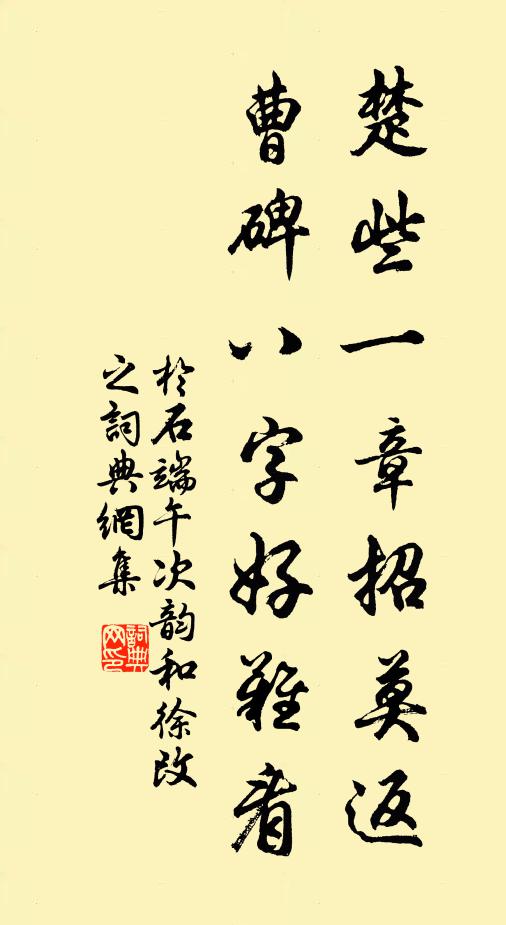 楚些一章招莫返
曹碑八字好难看
於石端午次韵和徐改
之词典网集
詞典
网印